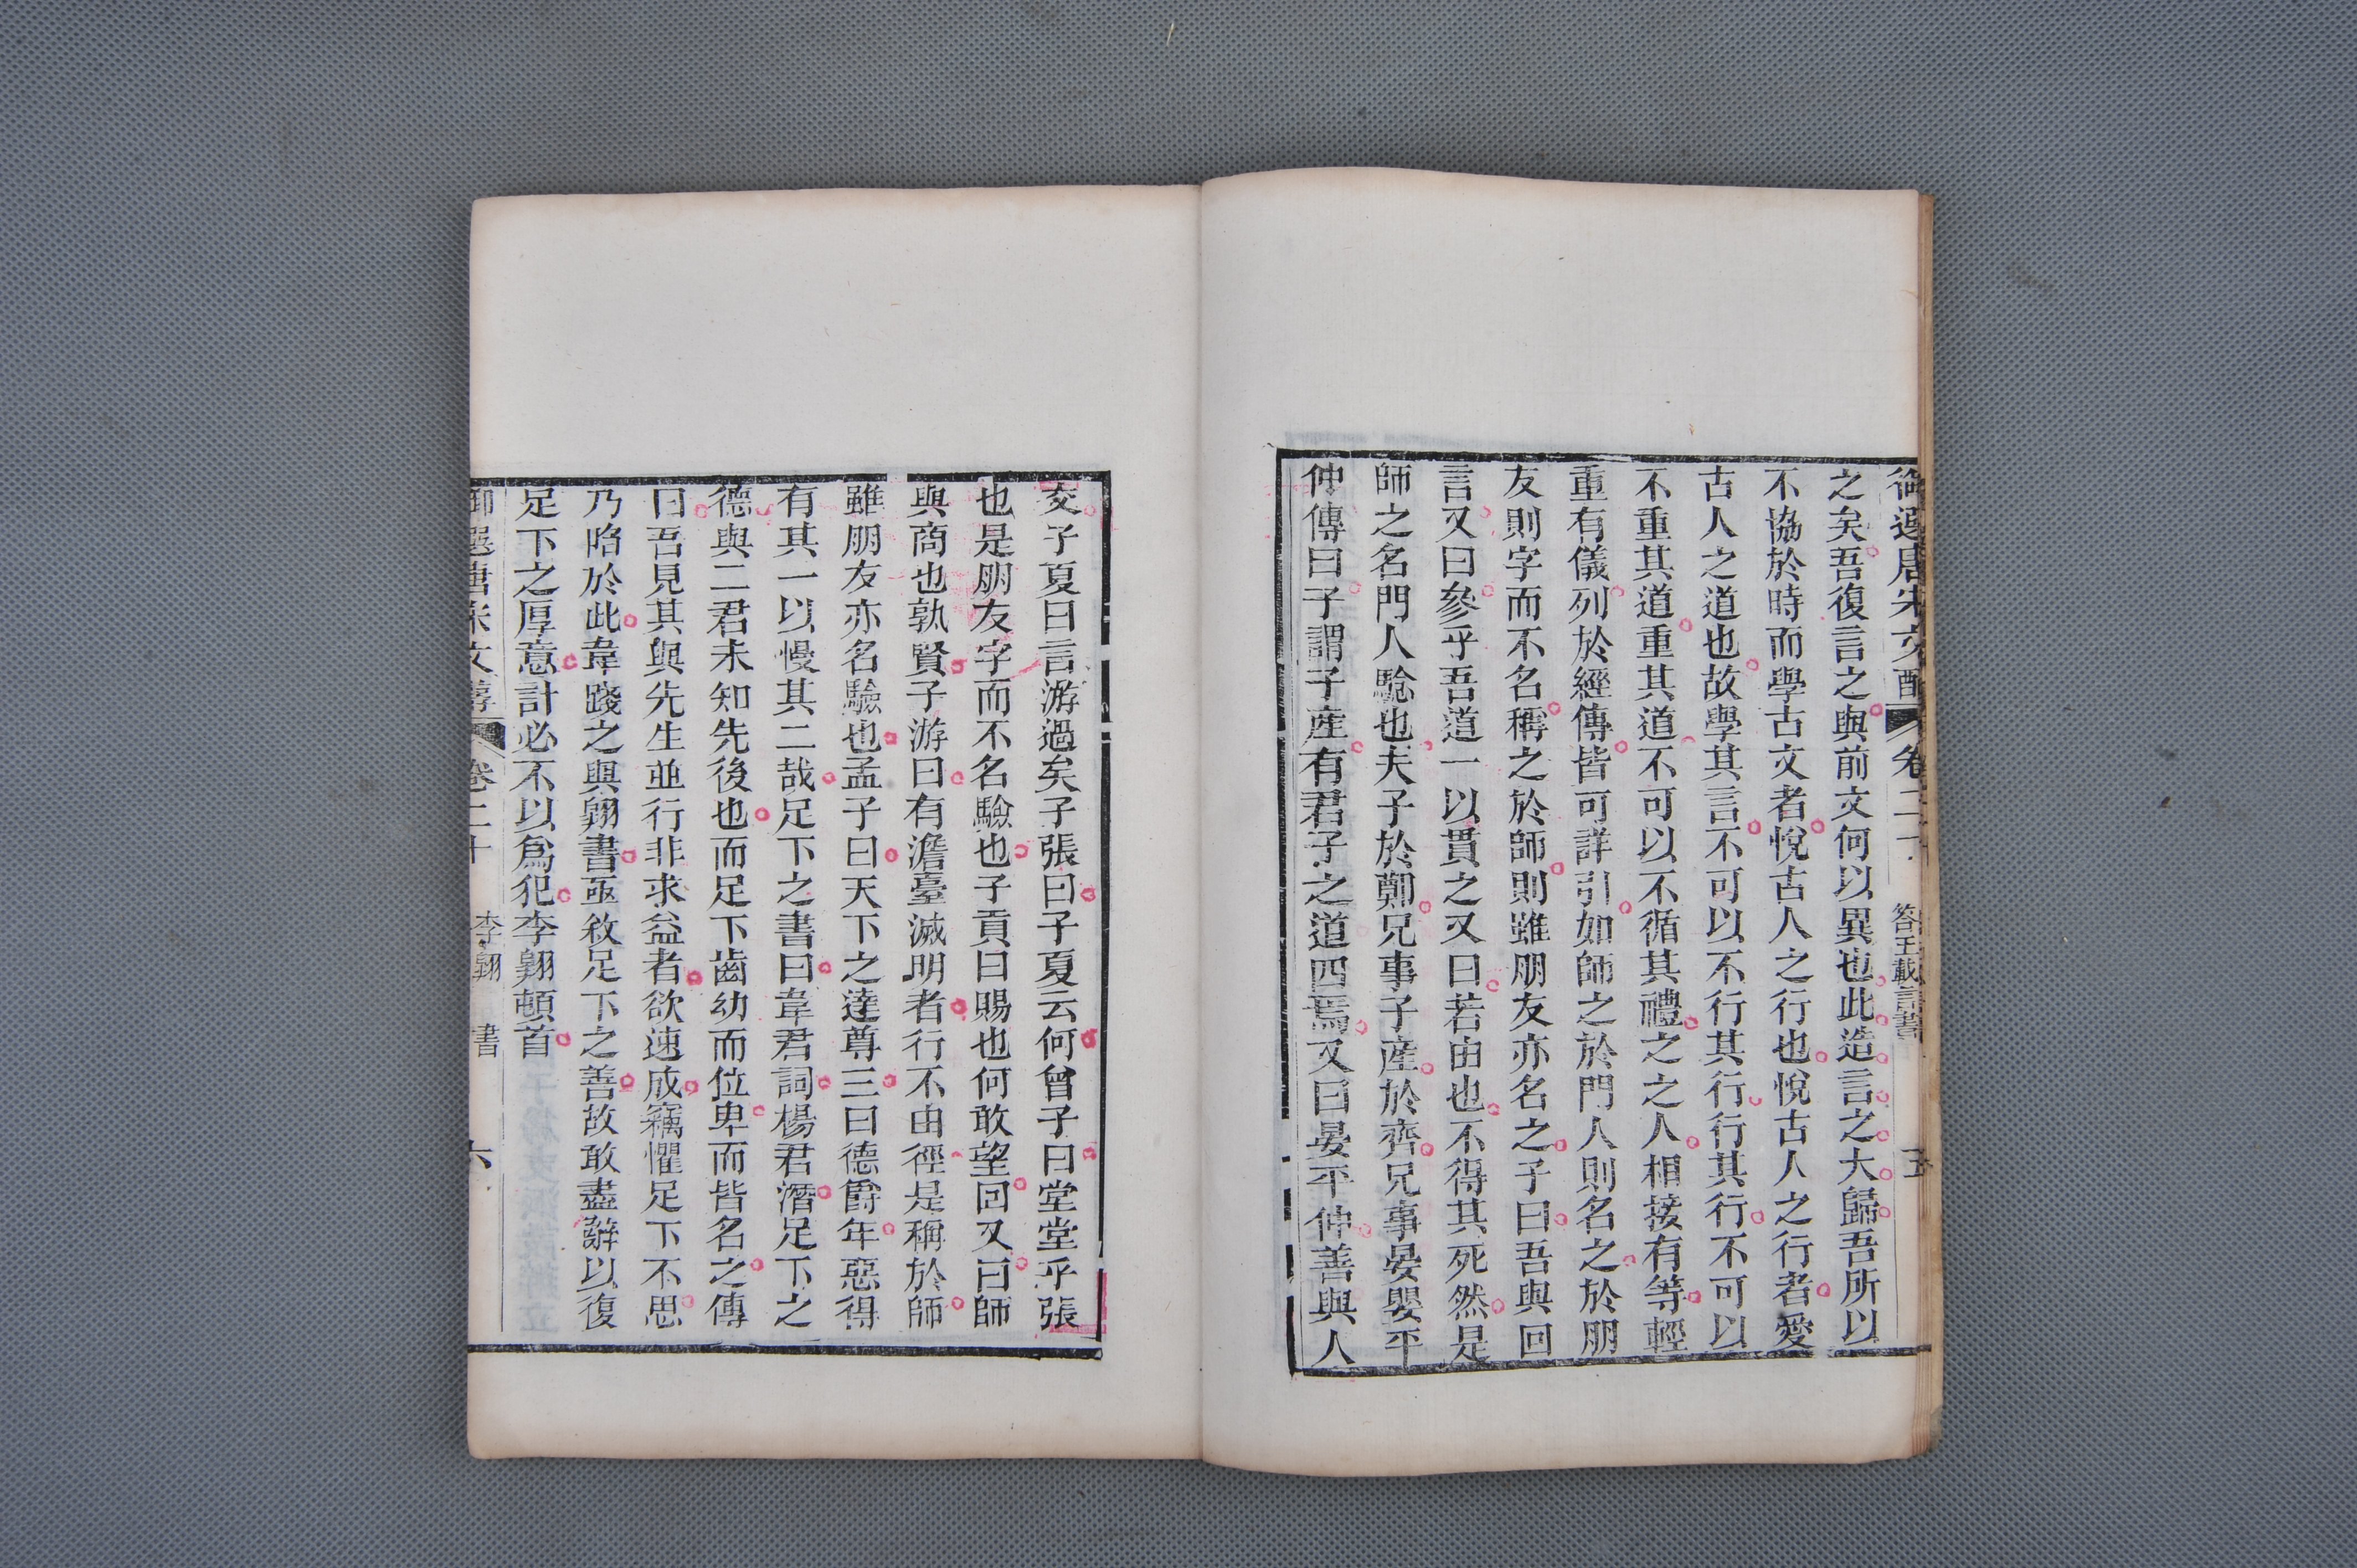 御選唐宋文醇 卷二十 答王載言書 五
之矣吾復言之與前文何以異也此造言之大歸吾所以
不協於時而學古文者悅古人之行也悅古人之行者愛
古人之道也故學其言不可以不行其行行其行不可以
不重其道重其道不可以不循其禮之之人相接有等輕
重有儀列於經傳皆可詳引如師之於門人則名之於朋
友則字而不名稱之於師則雖朋友亦名之子曰吾與回
言又曰參乎吾道一以貫之又曰若由也不得其死然是
師之名門人驗也夫子於鄭兄事子產於齊兄事晏嬰平
仲傳曰子謂子產有君子之道四焉又曰晏平仲善與人
交子夏曰言游過矣子張曰子夏云何曾子曰堂堂乎張
也是朋友字而不名驗也子貢曰賜也何敢望回又曰師
與商也孰賢子游曰有澹臺滅明者行不由徑是稱於師
雖朋友亦名驗也孟子曰天下之達尊三曰德爵年惡得
有其一以慢其二哉足下之書曰韋君詞楊君潛足下之
德與二君未知先後也而足下齒幼而位卑而皆名之傳
曰吾見其與先生並行非求益者欲速成竊懼足下不思
乃陷於此韋踐之與翺書亟敘足下之善故敢盡辭以復
足下之厚意計必不以爲犯李翺頓首
御選唐宋文醇 卷二十 李翺 書 六